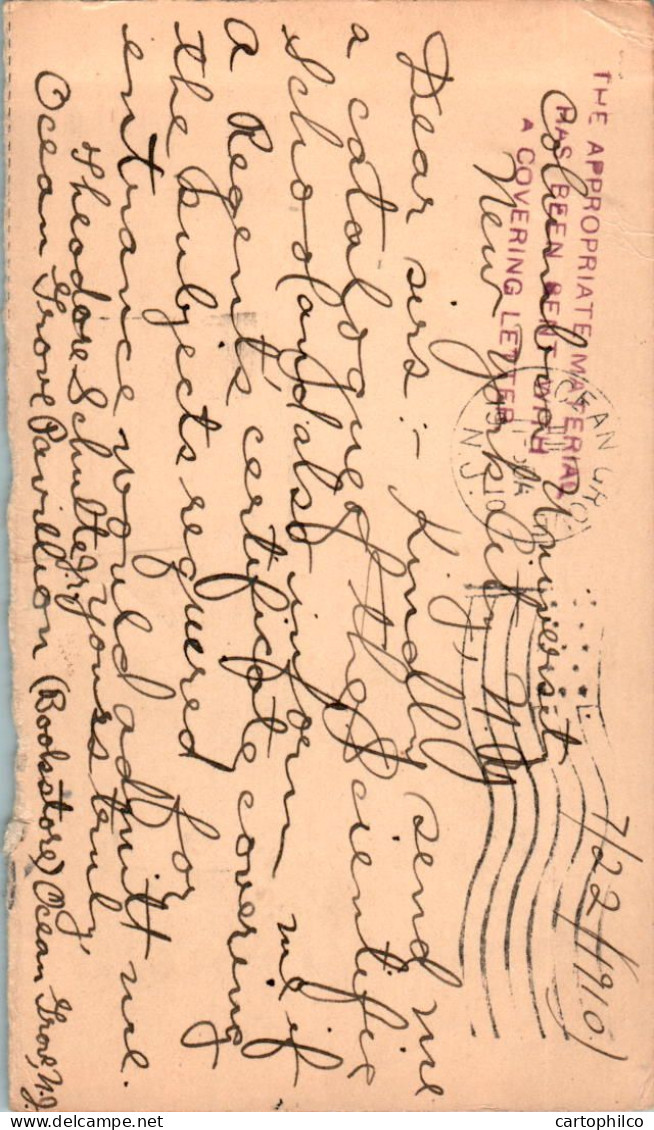 7/22/1910
Columbia Universit
New York City, N.Y.
Dear sirs :- Kindly send me
a catalogue of the Scientific
School and also inform me if
a Regents' certificate covering
the subjects requered for
entrance would admitt me.
yours truly,
Theodore Schulte Jr.
Ocean Grove Pavillion (Bookstore) Ocean Grove, N.J.
THE APPROPRIATE MATERIAL
HAS BEEN SENT WITH
A COVERING LETTER
OCEAN GROVE
N.J.
cartophilco